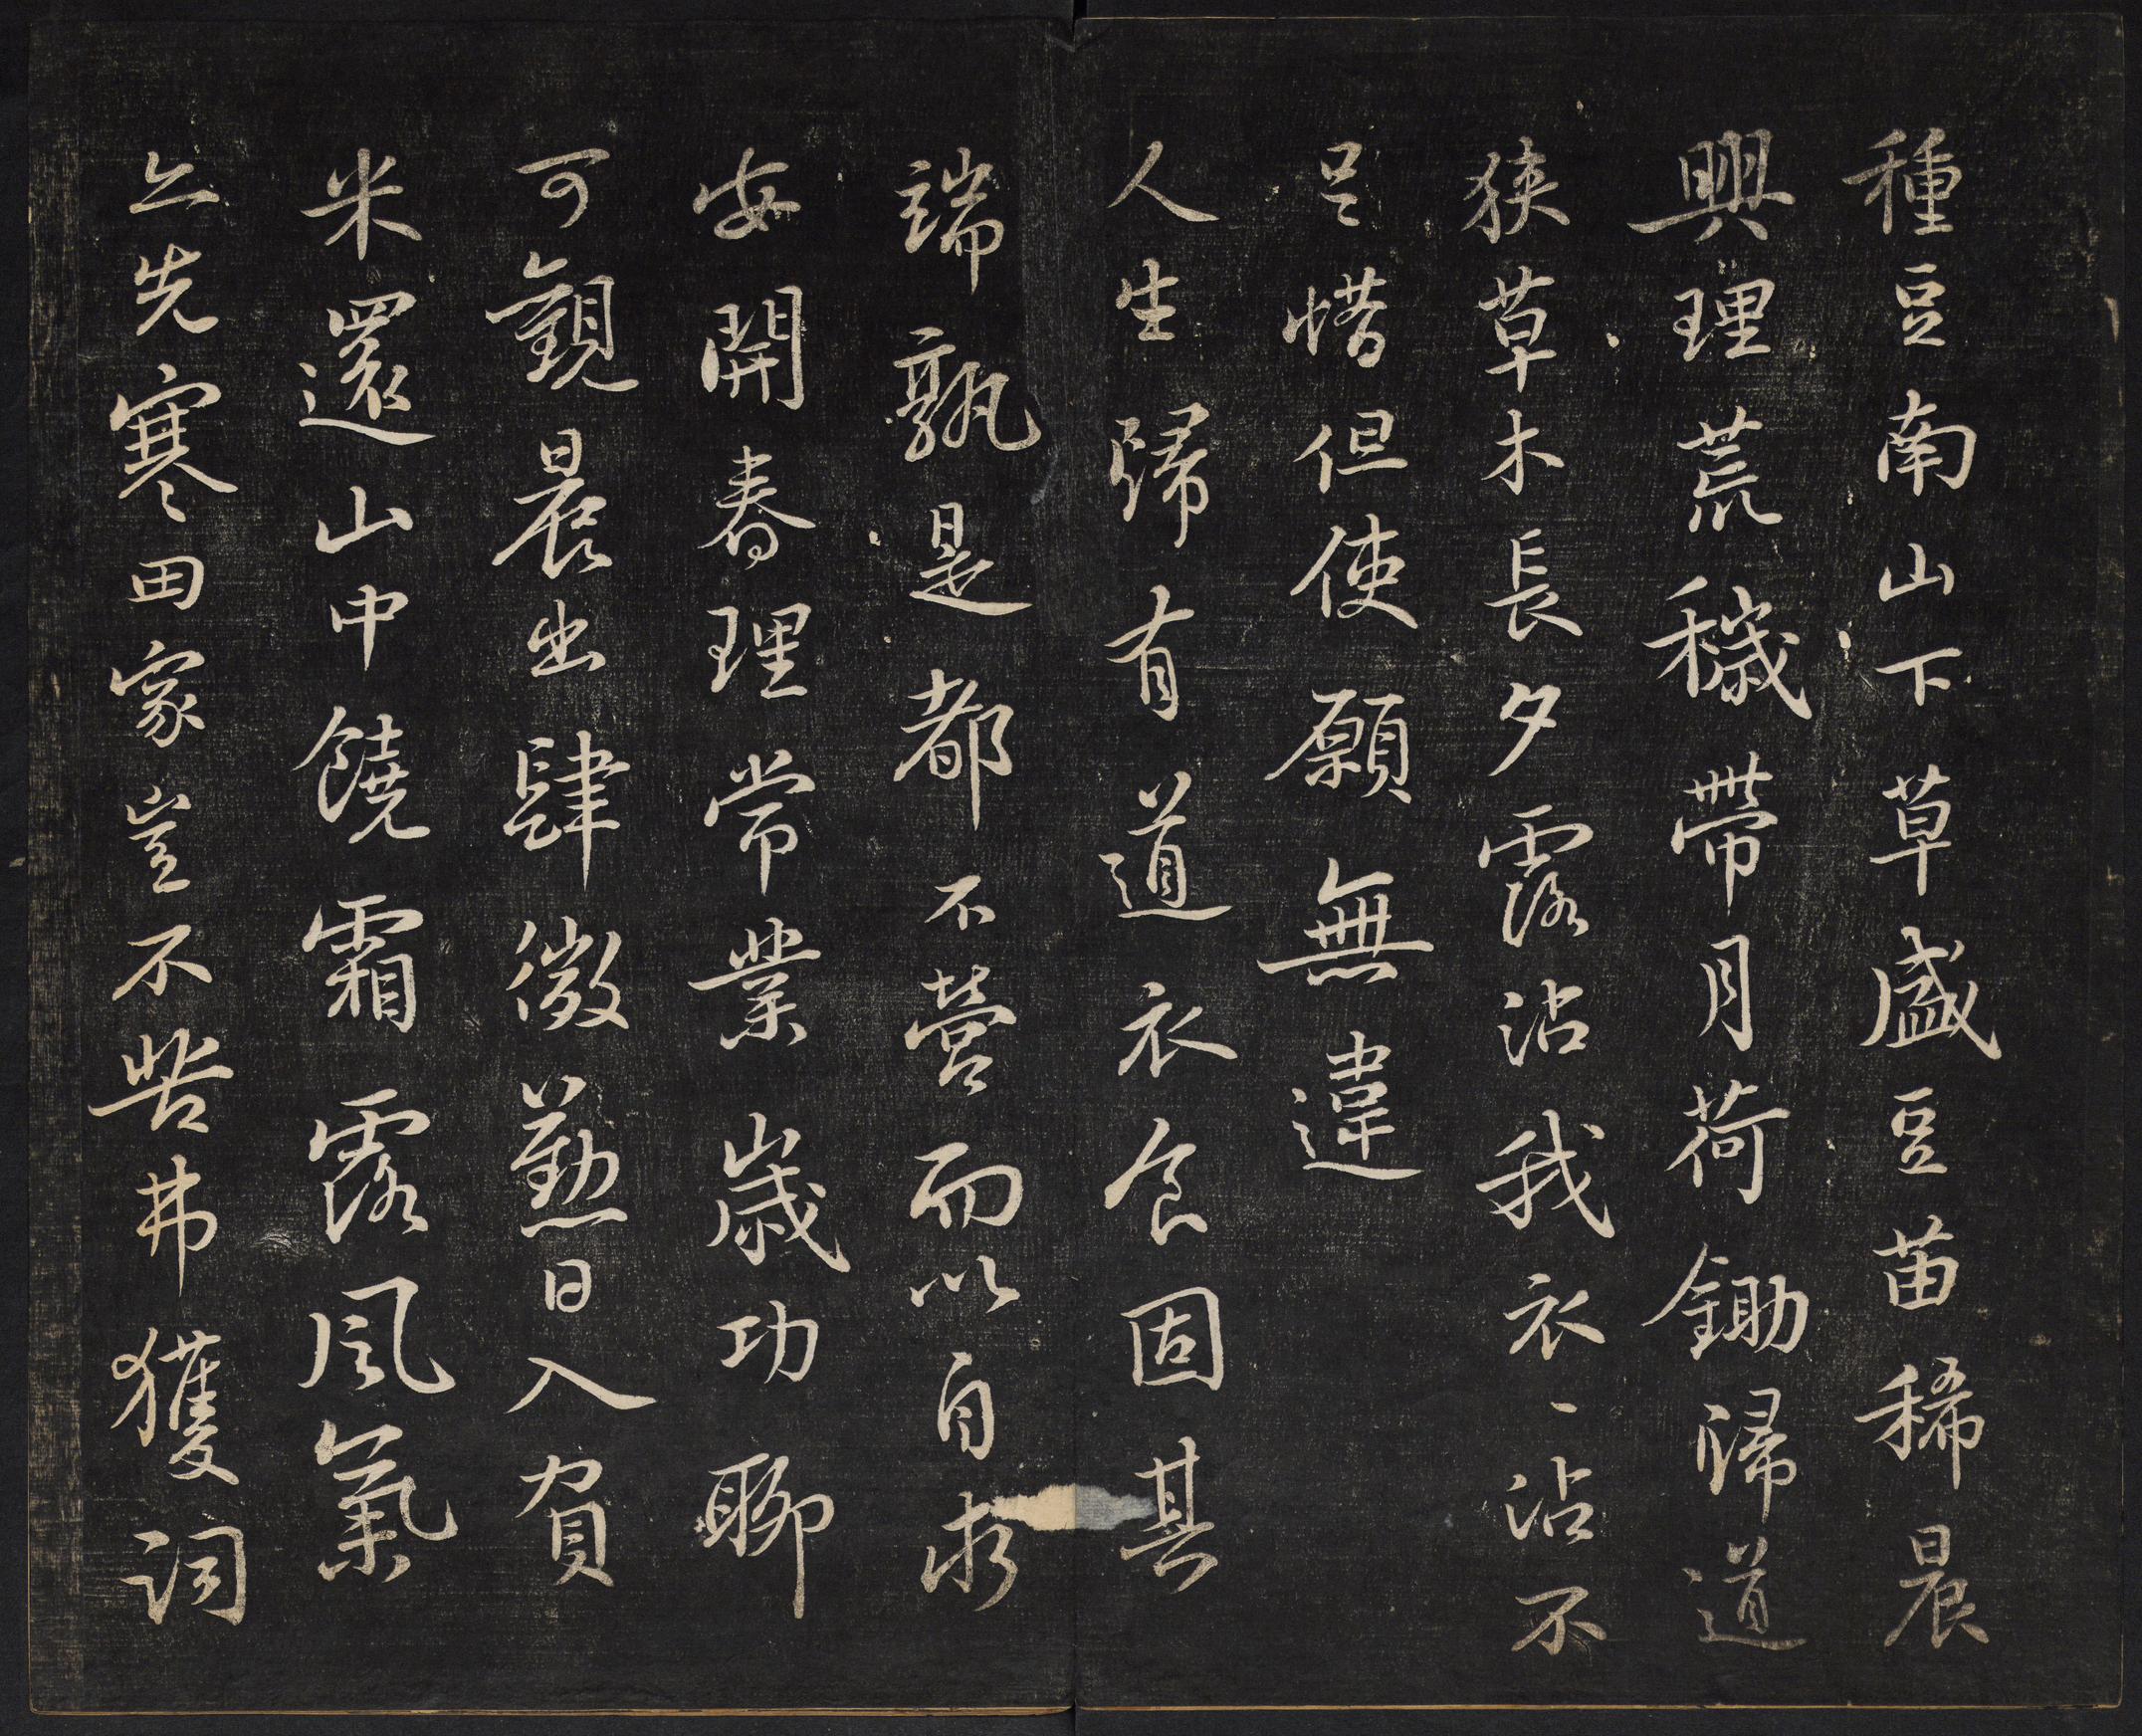 種豆南山下草盛豆苗稀晨
興理荒穢帶月荷鋤歸道
狹草木長夕露沾我衣〻沾不
足惜但使願無違
人生歸有道衣食固其
端孰是都不營而以自求
安開春理常業歲功聊
可觀晨出肆微勤日入負
米還山中饒霜露風氣
亦先寒田家豈不苦弗獲詞